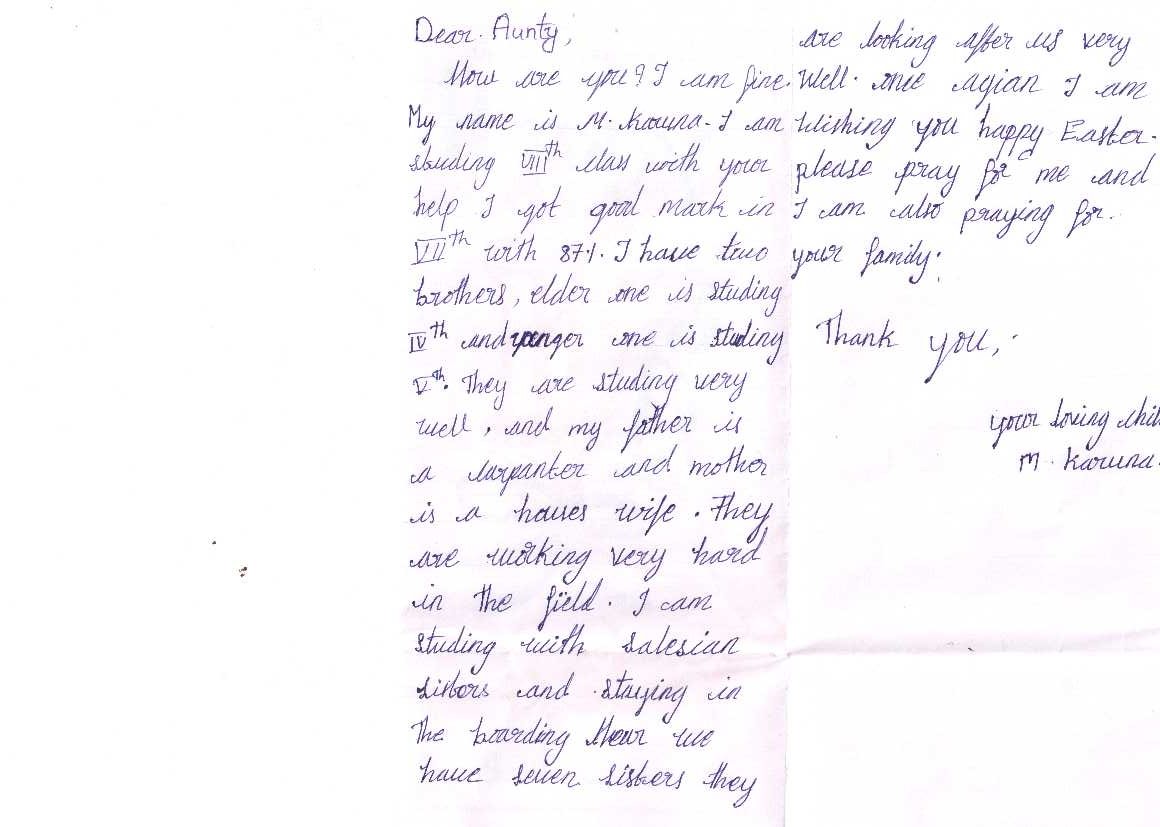 Dear. Aunty,
How are you? I am fine.
My name is M. Karuna. I am
studing VIIIth class with your
help I got good mark in
VIIth with 87%. I have two
brothers, elder one is studing
IVth and yunger one is studing
Vth. They are studing very
well, and my father is
a carpanter and mother
is a houes wife. They
are working very hard
in the field. I am
studing with salesian
sisters and staying in
the boarding Hear we
have seven sisters they
are looking after us very
Well. once agian I am
Wishing you happy Easter.
please pray for me and
I am also praying for.
your family.
Thank you,
your loving chil
M. Karuna.